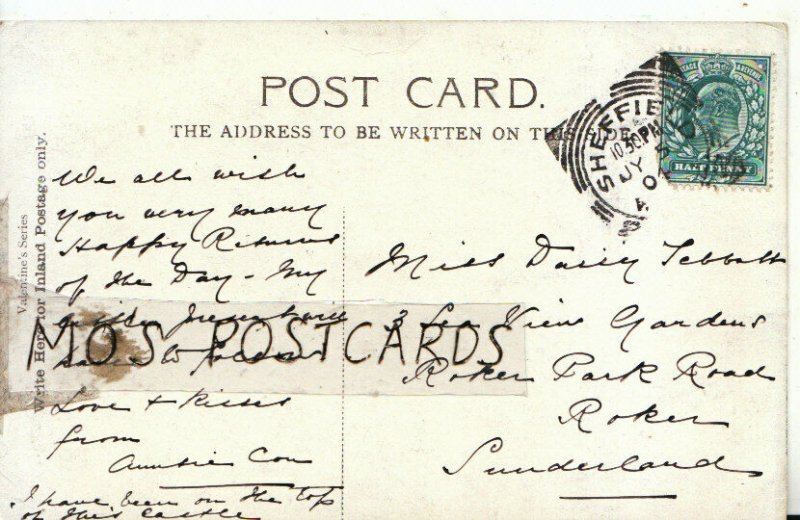 POST CARD.
THE ADDRESS TO BE WRITTEN ON THIS SIDE.
Valentine's Series
Write Here for Inland Postage only.
SHEFFIELD
10.30PM
JY 5
POSTAGE & REVENUE
HALFPENNY
We all wish
you very many
Happy Returns
of the Day - My
little present will
have to follow
Love & Kisses
from
Auntie Con
I have been on the top
of this Castle
Miss Daisy Tebbutt
3 Sea View Gardens
Roker Park Road
Roker
Sunderland
MO'S POSTCARDS